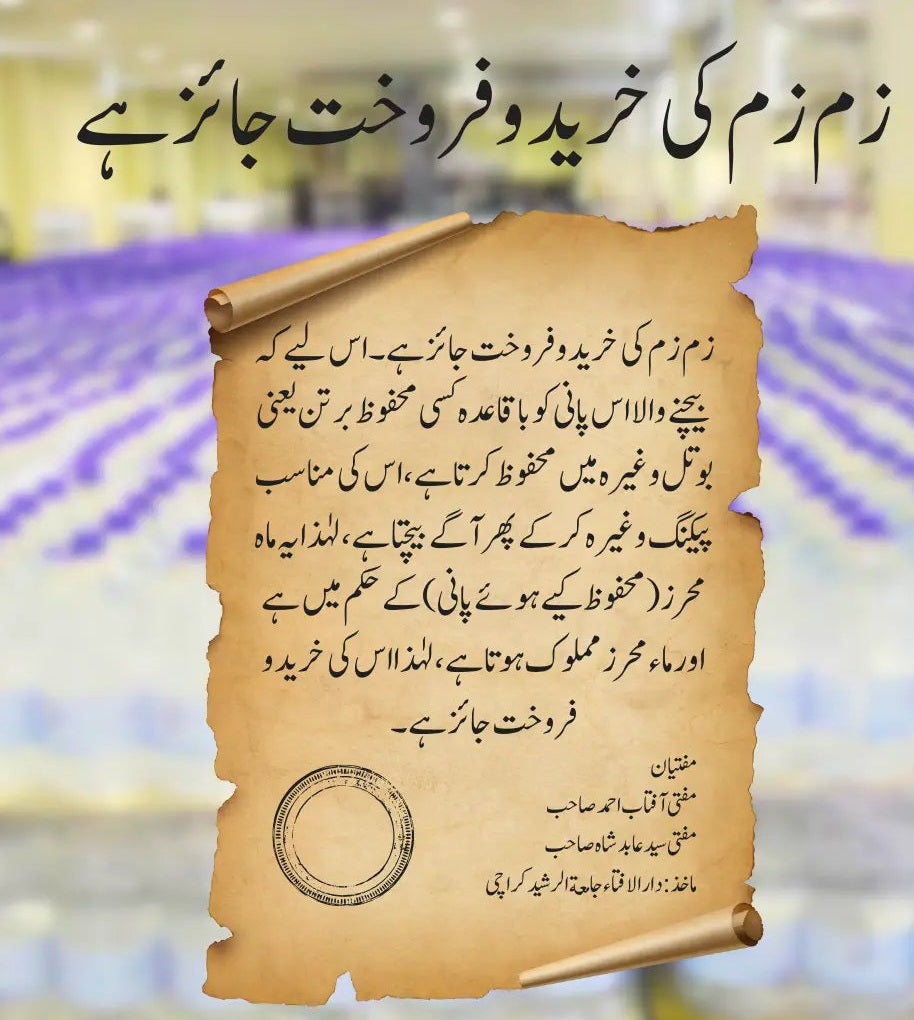 زم زم کی خرید و فروخت جائز ہے
زم زم کی خرید و فروخت جائز ہے۔ اس لیے کہ
بیچنے والا اس پانی کو باقاعدہ کسی محفوظ برتن یعنی
بوتل وغیرہ میں محفوظ کرتا ہے، اس کی مناسب
پیکنگ وغیرہ کرکے پھر آگے بیچتا ہے، لہٰذا یہ ماہ
محرز (محفوظ کیے ہوئے پانی) کے حکم میں ہے
اور ماء محرز مملوک ہوتا ہے، لہٰذا اس کی خرید و
فروخت جائز ہے۔
مفتیان
مفتی آفتاب احمد صاحب
مفتی سید عابد شاہ صاحب
ماخذ: دار الافتاء جامعۃ الرشید کراچی